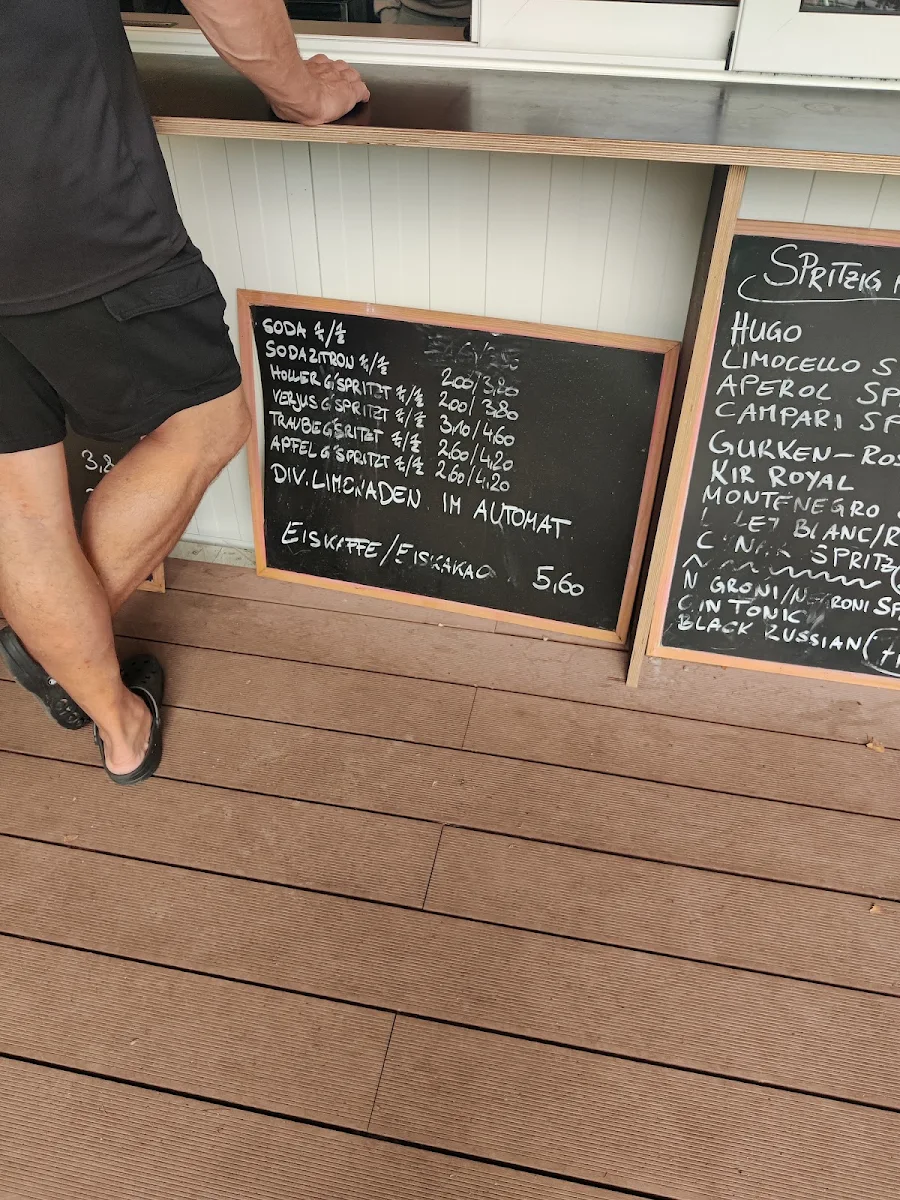 3,8
SODA ¼/½
SODAZITRON ¼/½ 2,00/3,20
HOLLER G'SPRITZT ¼/½ 2,00/3,80
VERJUS G'SPRITZT ¼/½ 3,10/4,60
TRAUBE G'SRITZT ¼/½ 2,60/4,20
APFEL G'SPRITZT ¼/½ 2,60/4,20
DIV. LIMONADEN IM AUTOMAT
EISKAFFE/EISKAKAO 5,60
SPRITZIG
HUGO
LIMOCELLO S
APEROL SP
CAMPARI SP
GURKEN-ROS
KIR ROYAL
MONTENEGRO
BLANC/R
SPRITZ
N GRONI/N RONI SP
GIN TONIC
BLACK RUSSIAN